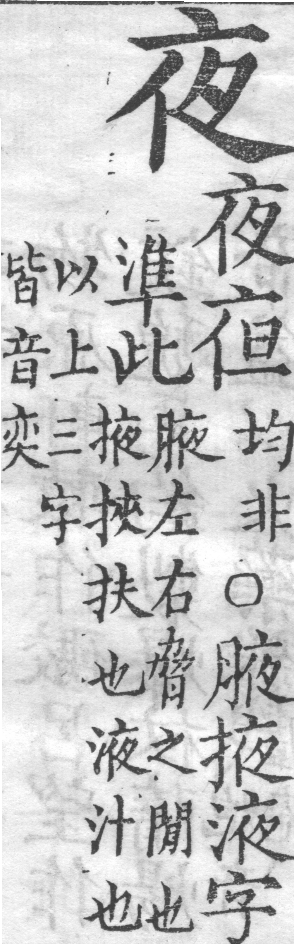 夜
夜亱均非○腋掖液字
準此腋左右脅之閒也
掖挾扶也液汁也
以上三字
皆音奕